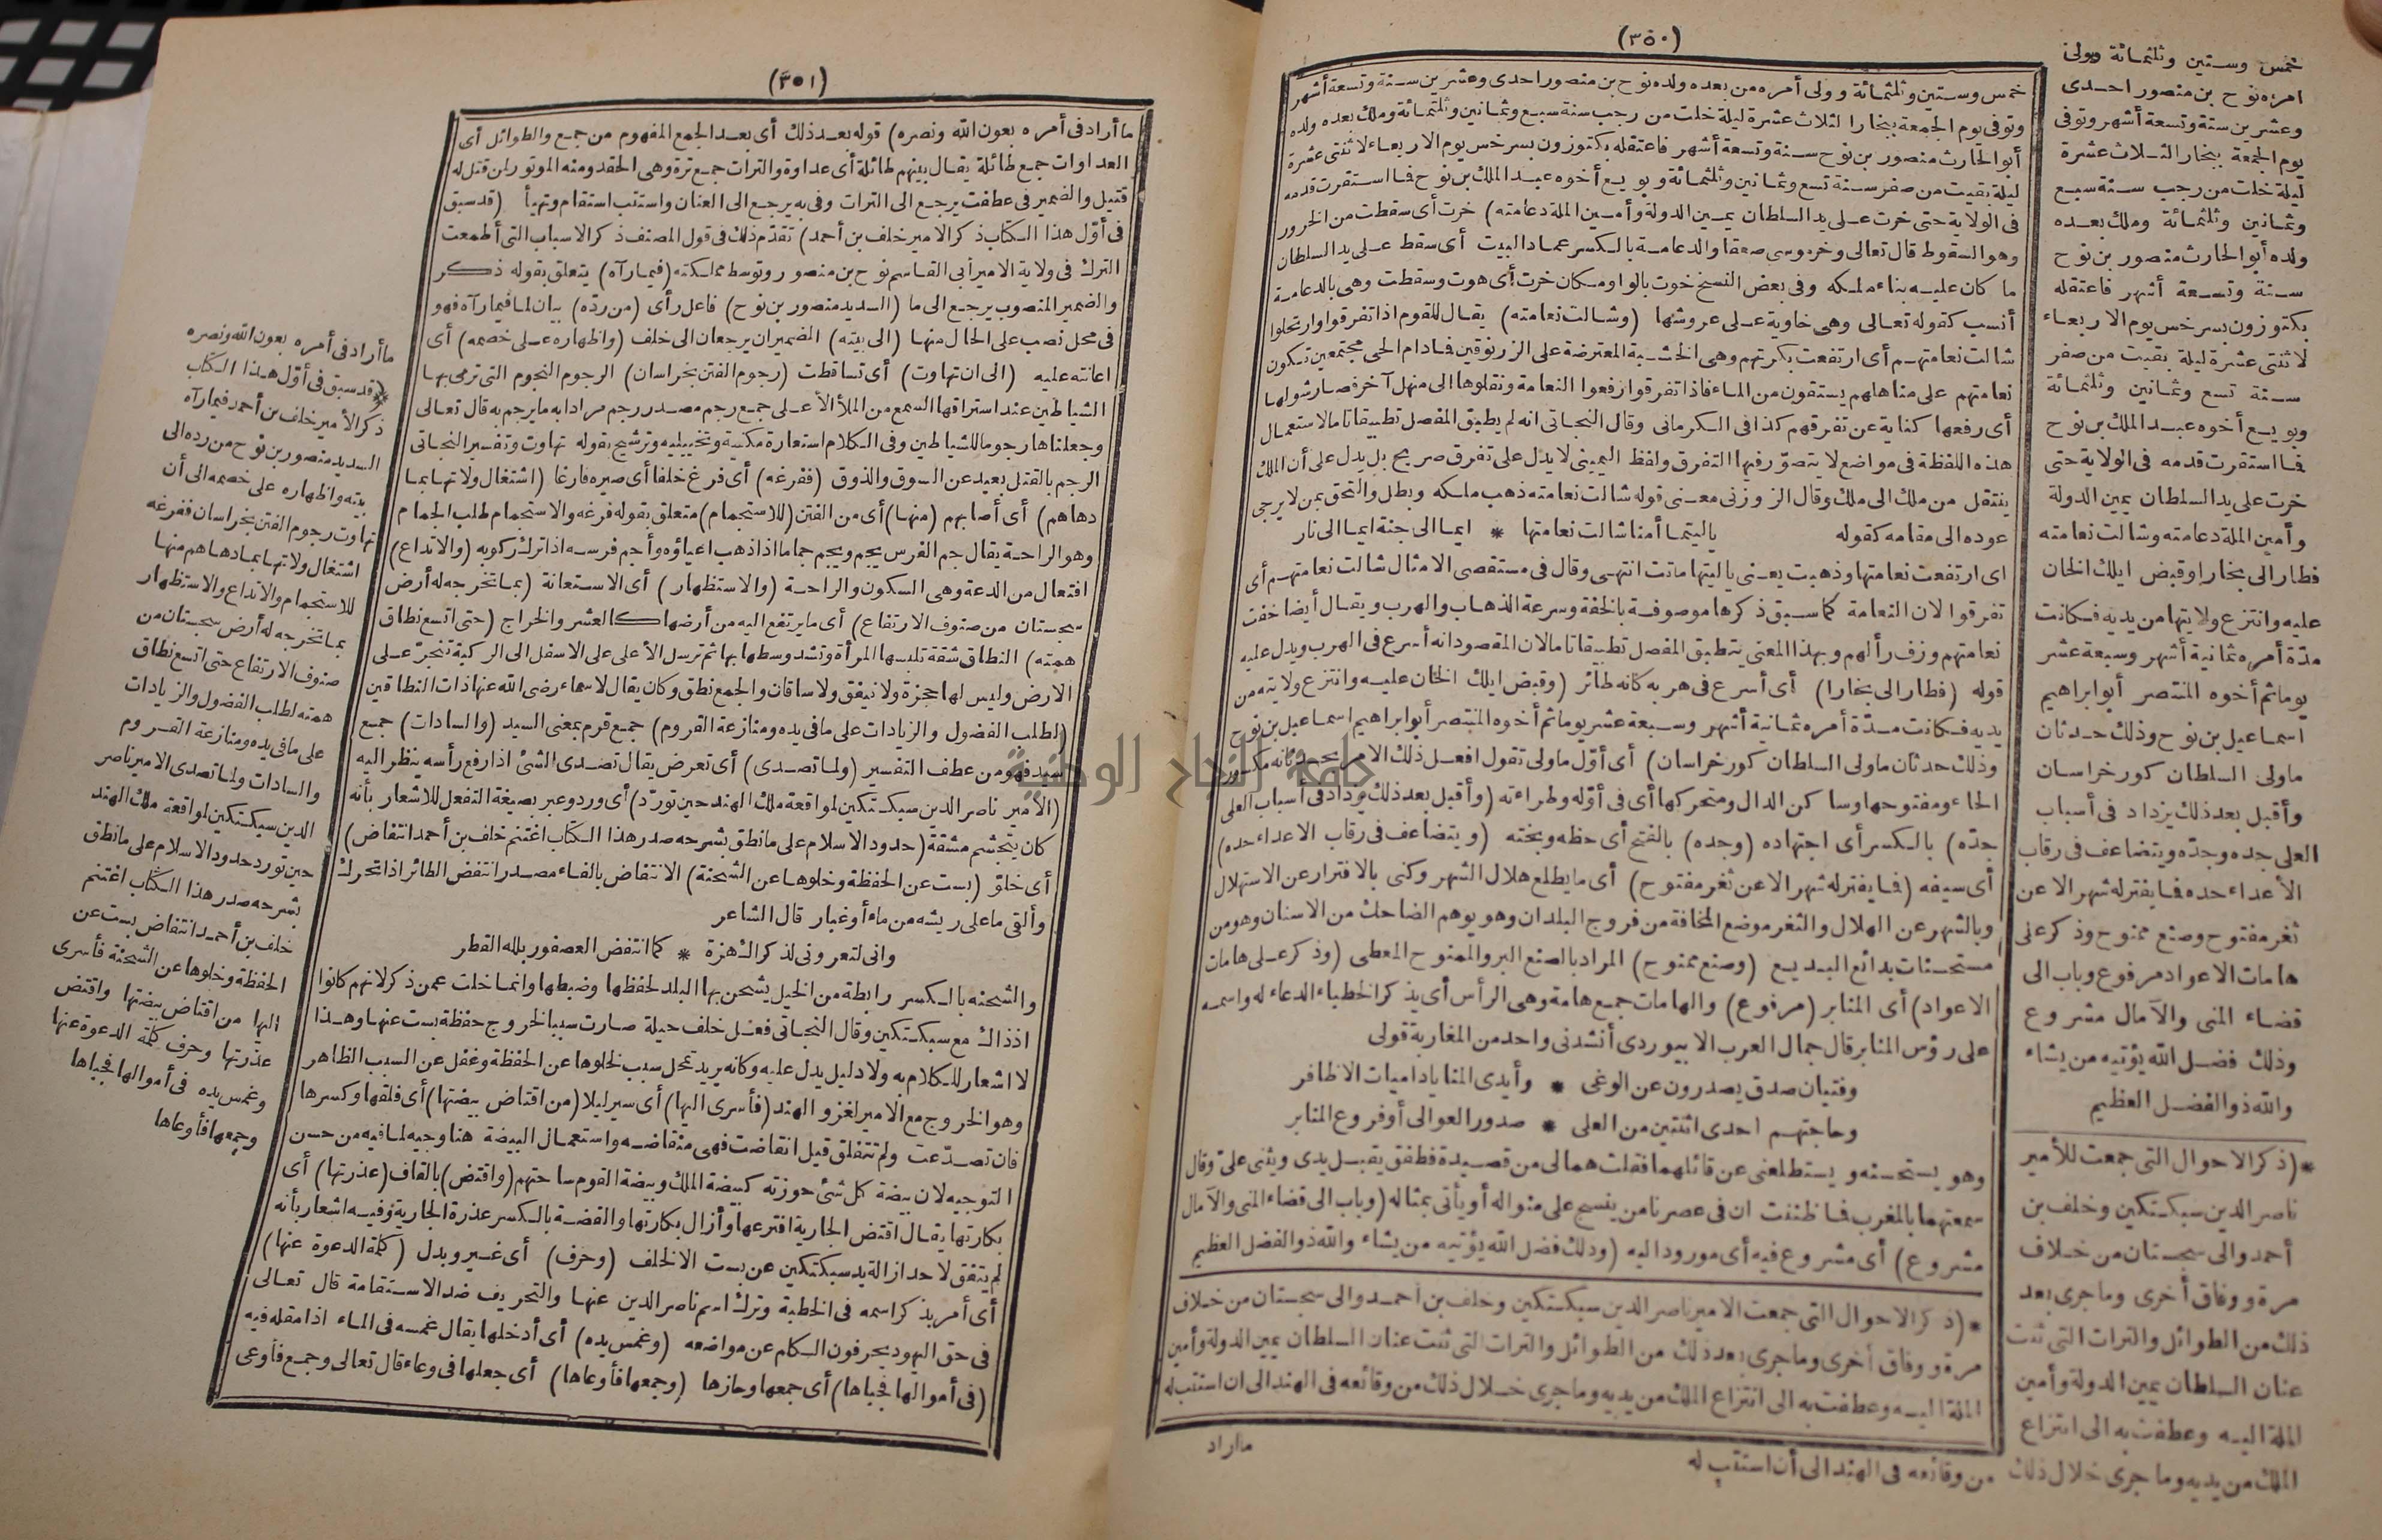 (٣٥٠)
خمس وستين وثلثمائة وولى
امره نوح بن منصور احدى
وعشرين سنة وتسعة أشهر وتوفى
يوم الجمعة ببخارا لثلاث عشرة
ليلة خلت من رجب سنة سبع
وثمانين وثلثمائة وملك بعده
ولده أبو الحارث منصور بن نوح
سنة وتسعة أشهر فاعتقله
بكتوزون بسرخس يوم الاربعاء
لاثنتى عشرة ليلة بقيت من صفر
سنة تسع وثمانين وثلثمائة
وبويع أخوه عبد الملك بن نوح
فما استقرت قدمه فى الولاية حتى
خرت على يد السلطان يمين الدولة
وأمين الملة دعامته وشالت نعامته
فطار الى بخارا وقبض ايلك الخان
عليه وانتزع ولايتها من يديه فكانت
مدة أمره ثمانية أشهر وسبعة عشر
يوما ثم أخوه المنتصر أبو ابراهيم
اسماعيل بن نوح وذلك حدثان
ماولى السلطان كور خراسان
وأقبل بعد ذلك يزداد فى أسباب
العلى جده وجدّه ويتضاعف فى رقاب
الأعداء حده فما يفتر له شهر الا عن
ثغر مفتوح وصنع ممنوح وذكر على
هامات الاعواد مرفوع وباب الى
قضاء المنى والآمال مشروع
وذلك فضل الله يؤتيه من يشاء
والله ذو الفضل العظيم
* (ذكر الاحوال التى جمعت للأمير
ناصر الدين سبكتكين وخلف بن
أحمد والى سجستان من خلاف
مرة ووفاق أخرى وما جرى بعد
ذلك من الطوائل والترات التى ثنت
عنان السلطان يمين الدولة وأمين
الملة اليه وعطفت به الى انتزاع
الملك من يديه وما جرى خلال ذلك من وقائعه فى الهند الى أن استتب له
خمس وستين وثلثمائة وولى أمره من بعده ولده نوح بن منصور احدى وعشرين سنة وتسعة أشهر
وتوفى يوم الجمعة ببخارا لثلاث عشرة ليلة خلت من رجب سنة سبع وثمانين وثلثمائة وملك بعده ولده
أبو الحارث منصور بن نوح سنة وتسعة أشهر فاعتقله بكتوزون بسرخس يوم الاربعاء لاثنتى عشرة
ليلة بقيت من صفر سنة تسع وثمانين وثلثمائة وبويع أخوه عبد الملك بن نوح فما استقرت قدمه
فى الولاية حتى خرت على يد السلطان يمين الدولة وأمين الملة دعامته) خرت أى سقطت من الخرور
وهو السقوط قال تعالى وخر موسى صعقا والدعامة بالكسر عماد البيت أى سقط على يد السلطان
ما كان عليه بناء ملكه وفى بعض النسخ خوت بالواو مكان خرت أى هوت وسقطت وهى بالدعامة
أنسب كقوله تعالى وهى خاوية على عروشها (وشالت نعامته) يقال للقوم اذا تفرقوا وارتحلوا
شالت نعامتهم أى ارتفعت بكرتهم وهى الخشبة المعترضة على الزرنوقين فمادام الحى مجتمعين تكون
نعامتهم على مناهلهم يستقون من الماء فاذا تفرقوا رفعوا النعامة ونقلوها الى منهل آخر فصار شولها
أى رفعها كناية عن تفرقهم كذا فى الكرمانى وقال النجاتى انه لم يطبق المفصل تطبيقا تاما لاستعمال
هذه اللفظة فى مواضع لا يتصوّر فيها التفرق ولفظ اليمينى لا يدل على تفرق صريح بل يدل على أن الملك
ينتقل من ملك الى ملك وقال الزوزنى معنى قوله شالت نعامته ذهب ملكه وبطل والتحق بمن لا يرجى
عوده الى مقامه كقوله ياليتما أمنا شالت نعامتها * ايما الى جنة ايما الى نار
اى ارتفعت نعامتها وذهبت يعنى ياليتها ماتت انتهى وقال فى مستقصى الامثال شالت نعامتهم أى
تفرقوا لان النعامة كما سبق ذكرها موصوفة بالخفة وسرعة الذهاب والهرب ويقال أيضا خفت
نعامتهم وزف رألهم وبهذا المعنى يتطبق المفصل تطبيقا تاما لان المقصود انه أسرع فى الهرب ويدل عليه
قوله (فطار الى بخارا) أى أسرع فى هربه كأنه طائر (وقبض ايلك الخان عليه وانتزع ولايته من
يديه فكانت مدّة أمره ثمانية أشهر وسبعة عشر يوما ثم أخوه المنتصر أبو ابراهيم اسماعيل بن نوح
وذلك حدثان ماولى السلطان كور خراسان) أى أوّل ماولى تقول افعل ذلك الامر بحدثانه مكسور
الحاء ومفتوحها وساكن الدال ومتحركها أى فى أوّله وطراءته (وأقبل بعد ذلك يزداد فى أسباب العلى
جدّه) بالكسر أى اجتهاده (وجده) بالفتح أى حظه وبخته (ويتضاعف فى رقاب الاعداء حده)
أى سيفه (فما يفتر له شهر الا عن ثغر مفتوح) أى ما يطلع هلال الشهر وكنى بالافترار عن الاستهلال
وبالشهر عن الهلال والثغر موضع المخافة من فروج البلدان وهو يوهم الضاحك من الاسنان وهو من
مستحسنات بدائع البديع (وصنع ممنوح) المراد بالصنع البر والممنوح المعطى (وذكر على هامات
الاعواد) أى المنابر (مرفوع) والهامات جمع هامة وهى الرأس أى يذكر الخطباء الدعاء له واسمه
على رؤس المنابر قال جمال العرب الابيوردى أنشدنى واحد من المغاربة قولى
وفتيان صدق يصدرون عن الوغى * وأيدى المنايا داميات الاظافر
وحاجتهم احدى اثنتين من العلى * صدور العوالى أو فروع المنابر
وهو يستحسنه ويستطلعنى عن قائلهما فقلت هما لى من قصيدة فطفق يقبل يدى ويثنى علىّ وقال
سمعتهما بالمغرب فما ظننت ان فى عصرنا من ينسج على منواله أو يأتى بمثاله (وباب الى قضاء المنى والآمال
مشروع) أى مشروع فيه أى مورود اليه (وذلك فضل الله يؤتيه من يشاء والله ذو الفضل العظيم
* (ذكر الاحوال التى جمعت الامير ناصر الدين سبكتكين وخلف بن أحمد والى سجستان من خلاف
مرة ووفاق أخرى وما جرى بعد ذلك من الطوائل والترات التى ثنت عنان السلطان يمين الدولة وأمين
الملة اليه وعطفت به الى انتزاع الملك من يديه وما جرى خلال ذلك من وقائعه فى الهند الى ان استتب له
ما اراد
(٣٥١)
ما أراد فى أمره بعون الله ونصره) قوله بعد ذلك أى بعد الجمع المفهوم من جمع والطوائل أى
العداوات جمع طائلة يقال بينهم طائلة أى عداوة والترات جمع ترة وهى الحقد ومنه الموتور لمن قتل له
قتيل والضمير فى عطفت يرجع الى الترات وفى به يرجع الى العنان واستتب استقام وتهيأ (قد سبق
فى أوّل هذا الكتاب ذكر الامير خلف بن أحمد) تقدّم ذلك فى قول المصنف ذكر الاسباب التى أطمعت
الترك فى ولاية الامير أبى القاسم نوح بن منصور وتوسط مملكته (فيما رآه) يتعلق بقوله ذكر
والضمير المنصوب يرجع الى ما (السديد منصور بن نوح) فاعل رأى (من ردّه) بيان لما فيما رآه فهو
فى محل نصب على الحال منها (الى بيته) الضميران يرجعان الى خلف (واظهاره على خصمه) أى
اعانته عليه (الى ان تهاوت) أى تساقطت (رجوم الفتن بخراسان) الرجوم النجوم التى ترمى بها
الشياطين عند استراقها السمع من الملأ الأعلى جمع رجم مصدر رجم مرادا به ما يرجم به قال تعالى
وجعلناها رجوما للشياطين وفى الكلام استعارة مكنية وتخييلية وترشيح بقوله تهاوت وتفسير النجاتى
الرجم بالقتل بعيد عن السوق والذوق (ففرغه) أى فرغ خلفا أى صيره فارغا (اشتغال ولاتها بما
دهاهم) أى أصابهم (منها) أى من الفتن (للاستجمام) متعلق بقوله فرغه والاستجمام طلب الجمام
وهو الراحة يقال جم الفرس يجم ويجم جماما اذا ذهب اعياؤه وأجم فرسه اذا ترك ركوبه (والاتداع)
افتعال من الدعة وهى السكون والراحة (والاستظهار) أى الاستعانة (بما تخرجه له أرض
سجستان من صنوف الارتفاع) أى ما يرتفع اليه من أرضها كالعشر والخراج (حتى اتسع نطاق
همته) النطاق شقة تلبسها المرأة وتشد وسطها بها ثم ترسل الأعلى على الاسفل الى الركبة تنجرّ على
الارض وليس لها حجزة ولا نيفق ولا ساقان والجمع نطق وكان يقال لاسماء رضى الله عنها ذات النطاقين
(لطلب الفضول والزيادات على ما فى يده ومنازعة القروم) جمع قرم بمعنى السيد (والسادات) جمع
سيد فهو من عطف التفسير (ولما تصدى) أى تعرض يقال تصدى الشئ اذا رفع رأسه ينظر اليه
(الأمير ناصر الدين سبكتكين لمواقعة ملك الهند حين تورّد) أى ورد وعبر بصيغة التفعل للاشعار بأنه
كان يتجشم مشقة (حدود الاسلام على ما نطق بشرحه صدر هذا الكتاب اغتنم خلف بن أحمد انتفاض)
أى خلوّ (بست عن الحفظة وخلوها عن الشحنة) الانتفاض بالفاء مصدر انتفض الطائر اذا تحرك
وألقى ما على ريشه من ماء أو غبار قال الشاعر
وانى لتعرونى لذكراك هزة * كما انتفض العصفور بلله القطر
والشحنة بالكسر رابطة من الخيل يشحن بها البلد لحفظها وضبطها وانما خلت عمن ذكر لانهم كانوا
اذ ذاك مع سبكتكين وقال النجاتى فعل خلف حيلة صارت سببا لخروج حفظة بست عنها وهذا
لا اشعار للكلام به ولا دليل يدل عليه وكانه يريد تمحل سبب لخلوها عن الحفظة وغفل عن السبب الظاهر
وهو الخروج مع الامير لغزو الهند (فأسرى اليها) أى سير ليلا (من اقتاض بيضتها) أى فلقها وكسرها
فان تصدّعت ولم تتفلق قيل انقاضت فهى منقاضة واستعمال البيضة هنا وجيه لما فيه من حسن
التوجيه لان بيضة كل شئ حوزته كبيضة الملك وبيضة القوم ساحتهم (واقتض) بالقاف (عذرتها) أى
بكارتها يقال اقتض الجارية افترعها وأزال بكارتها والقضة بالكسر عذرة الجارية وفيه اشعار بأنه
لم يتفق لاحد ازالة يد سبكتكين عن بست الا لخلف (وحرف) أى غير وبدل (كلمة الدعوة عنها)
أى أمر بذكر اسمه فى الخطبة وترك اسم ناصر الدين عنها والتحريف ضد الاستقامة قال تعالى
فى حق اليهود يحرفون الكلم عن مواضعه (وغمس يده) أى أدخلها يقال غمسه فى الماء اذا مقله فيه
(فى أموالها فجباها) أى جمعها وحازها (وجمعها فأوعاها) أى جعلها فى وعاء قال تعالى وجمع فأوعى
ما أراد فى أمره بعون الله ونصره
* قد سبق فى أوّل هذا الكتاب
ذكر الأمير خلف بن أحمد فيما رآه
السديد منصور بن نوح من رده الى
بيته واظهاره على خصمه الى أن
تهاوت رجوم الفتن بخراسان ففرغه
اشتغال ولاتها بما دهاهم منها
للاستجمام والاتداع والاستظهار
بما تخرجه له أرض سجستان من
صنوف الارتفاع حتى اتسع نطاق
همته لطلب الفضول والزيادات
على ما فى يده ومنازعة القروم
والسادات ولما تصدى الامير ناصر
الدين سبكتكين لمواقعة ملك الهند
حين تورد حدود الاسلام على ما نطق
بشرحه صدر هذا الكتاب اغتنم
خلف بن أحمد انتفاض بست عن
الحفظة وخلوها عن الشحنة فأسرى
اليها من اقتاض بيضتها واقتض
عذرتها وحرف كلمة الدعوة عنها
وغمس يده فى أموالها فجباها
وجمعها فأوعاها
جامعة النجاح الوطنية